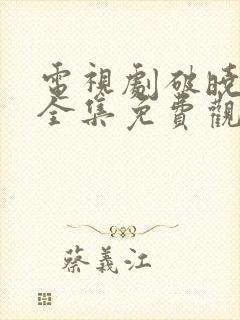 電視劇破曉
全集免費觀
蔡義江